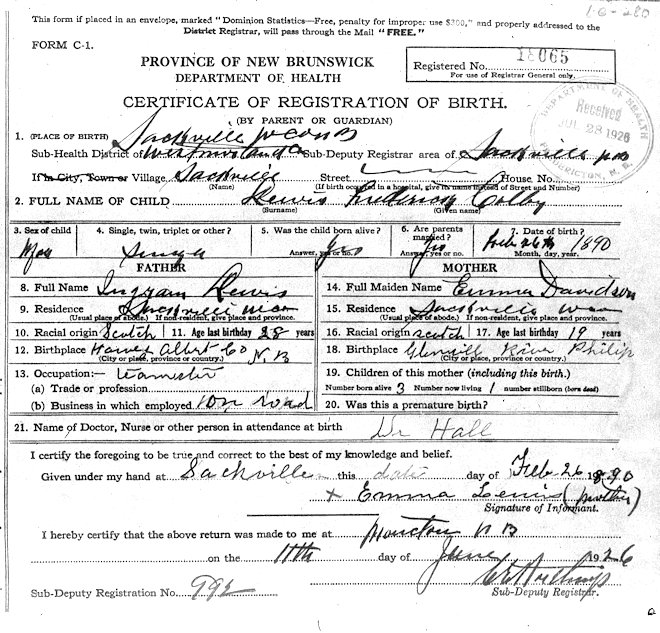 1-6-280
This form if placed in an envelope, marked "Dominion Statistics—Free, penalty for improper use $300," and properly addressed to the
District Registrar, will pass through the Mail "FREE."
FORM C-1.
PROVINCE OF NEW BRUNSWICK
DEPARTMENT OF HEALTH
Registered No. 18065
For use of Registrar General only.
CERTIFICATE OF REGISTRATION OF BIRTH.
(BY PARENT OR GUARDIAN)
DEPARTMENT OF HEALTH
Received
JUL 28 1926
FREDERICTON, N. B.
1. (PLACE OF BIRTH) Sackville
Sub-Health District of Westmorland Co Sub-Deputy Registrar area of Sackville
If In City, Town or Village Sackville Street House No.
(Name) (If birth occurred in a hospital, give its name instead of Street and Number)
2. FULL NAME OF CHILD Lewis Frederick Colby
(Surname) (Given name)
3. Sex of child 4. Single, twin, triplet or other? 5. Was the child born alive? 6. Are parents married? 7. Date of birth?
Single Yes Yes Feb 26th 1890
Answer, yes or no. Answer, yes or no. Month, day, year.
FATHER
8. Full Name Ingram Lewis
9. Residence Sackville
(Usual place of abode.) If non-resident, give place and province.
10. Racial origin Scotch 11. Age last birthday 28 years
12. Birthplace Albert Co N.B
(City or place, province or country.)
13. Occupation:— teamster
(a) Trade or profession
(b) Business in which employed on road
MOTHER
14. Full Maiden Name Emma Davidson
15. Residence Sackville
(Usual place of abode.) If non-resident, give place and province.
16. Racial origin scotch 17. Age last birthday 19 years
18. Birthplace River Philip
(City or place, province or country.)
19. Children of this mother (including this birth.)
Number born alive 3 Number now living 1 number stillborn (born dead)
20. Was this a premature birth?
21. Name of Doctor, Nurse or other person in attendance at birth Dr Hall
I certify the foregoing to be true and correct to the best of my knowledge and belief.
Given under my hand at Sackville this date day of Feb 26 1890
x Emma Lewis (mother)
Signature of Informant.
I hereby certify that the above return was made to me at Moncton N B
on the 11th day of June 1926
Sub-Deputy Registration No. 992 Sub-Deputy Registrar.